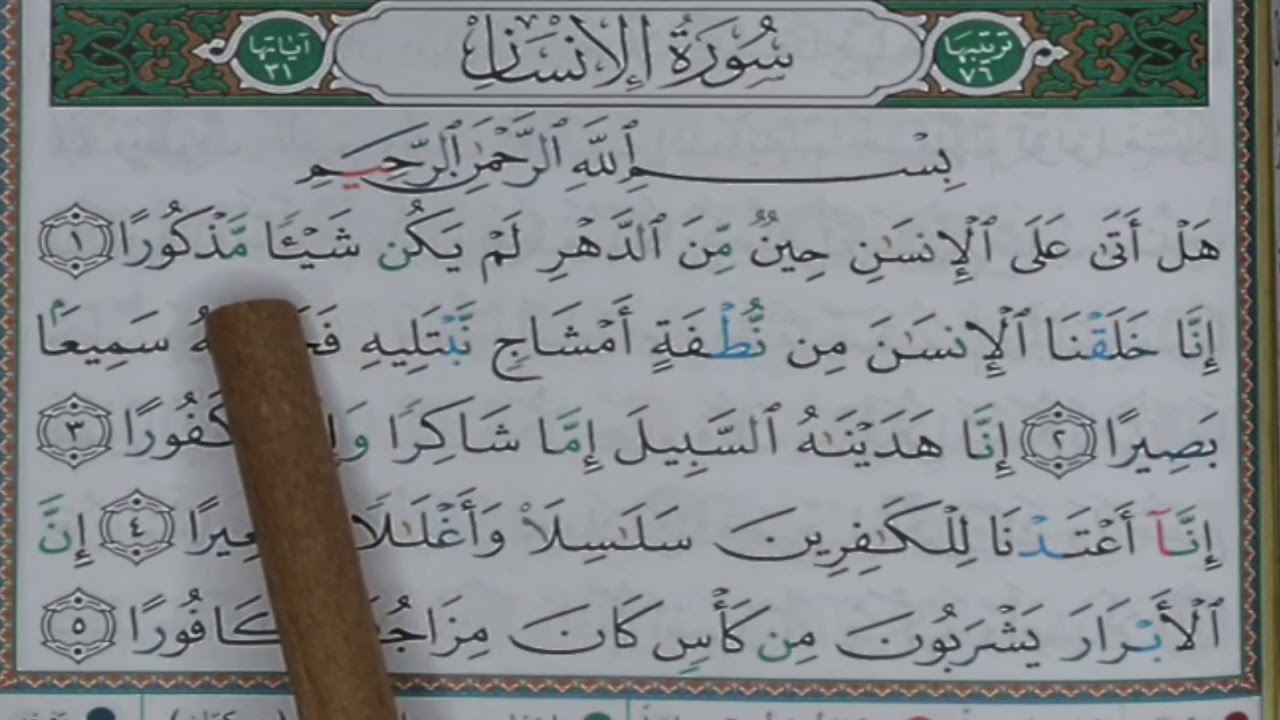 ترتيبها ٧٦ سُورَةُ الإِنسَانِ آياتها ٣١
بِسْمِ ٱللَّهِ ٱلرَّحْمَٰنِ ٱلرَّحِيمِ
هَلْ أَتَىٰ عَلَى ٱلْإِنسَٰنِ حِينٌ مِّنَ ٱلدَّهْرِ لَمْ يَكُن شَيْـًٔا مَّذْكُورًا ١
إِنَّا خَلَقْنَا ٱلْإِنسَٰنَ مِن نُّطْفَةٍ أَمْشَاجٍ نَّبْتَلِيهِ سَمِيعًۢا
بَصِيرًا ٢ إِنَّا هَدَيْنَٰهُ ٱلسَّبِيلَ إِمَّا شَاكِرًا كَفُورًا ٣
إِنَّآ أَعْتَدْنَا لِلْكَٰفِرِينَ سَلَٰسِلَا۟ وَأَغْلَٰلًا ٤ إِنَّ
ٱلْأَبْرَارَ يَشْرَبُونَ مِن كَأْسٍ كَانَ كَافُورًا ٥